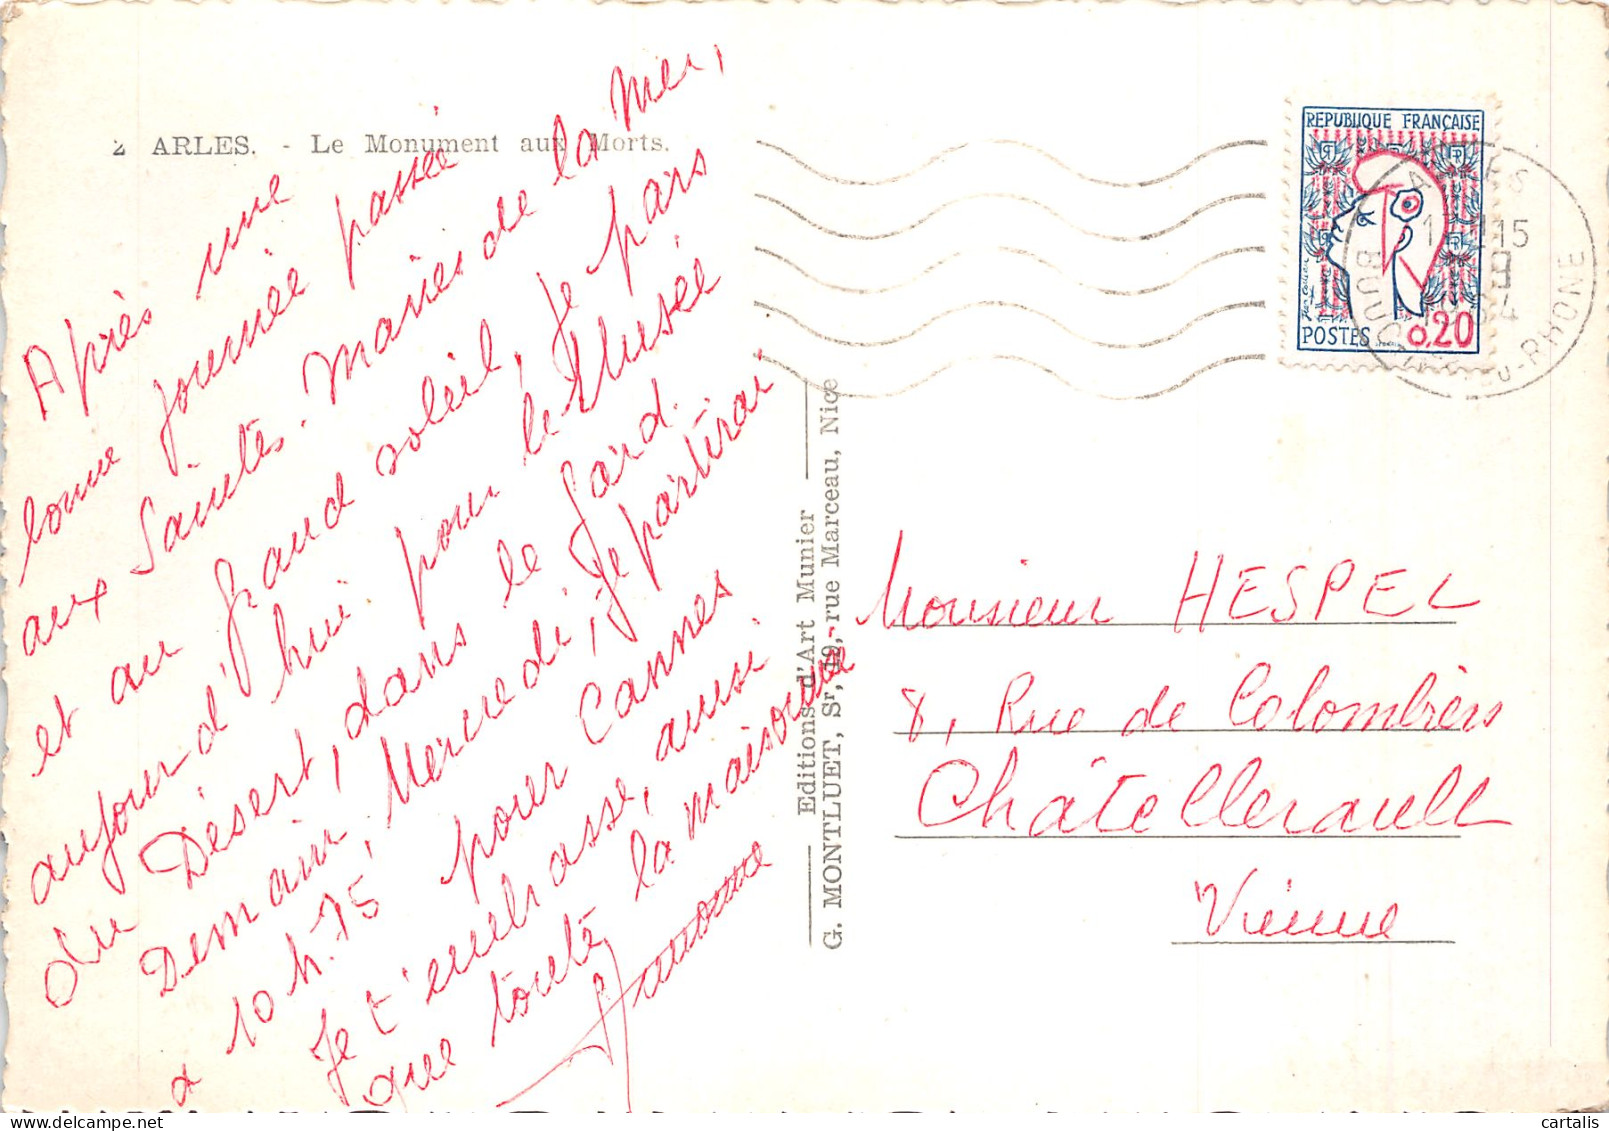 2 ARLES. - Le Monument aux Morts.
Après une
bonne journée passée
aux Saintes-Maries de la Mer,
et au grand soleil, je pars
aujourd'hui pour le Musée
du Désert, dans le Gard.
Demain, Mercredi, je partirai
à 10 h. 15 pour Cannes
Je t'embrasse, ainsi
que toute la maisonnée
Editions d'Art Munier
G. MONTLUET, Sr, 19, rue Marceau, Nice
REPUBLIQUE FRANÇAISE
POSTES 0,20
ARLES
15
9
1964
BOUCHES-DU-RHONE
Monsieur HESPEL
8, Rue de Colombiers
Châtellerault
Vienne
cartalis